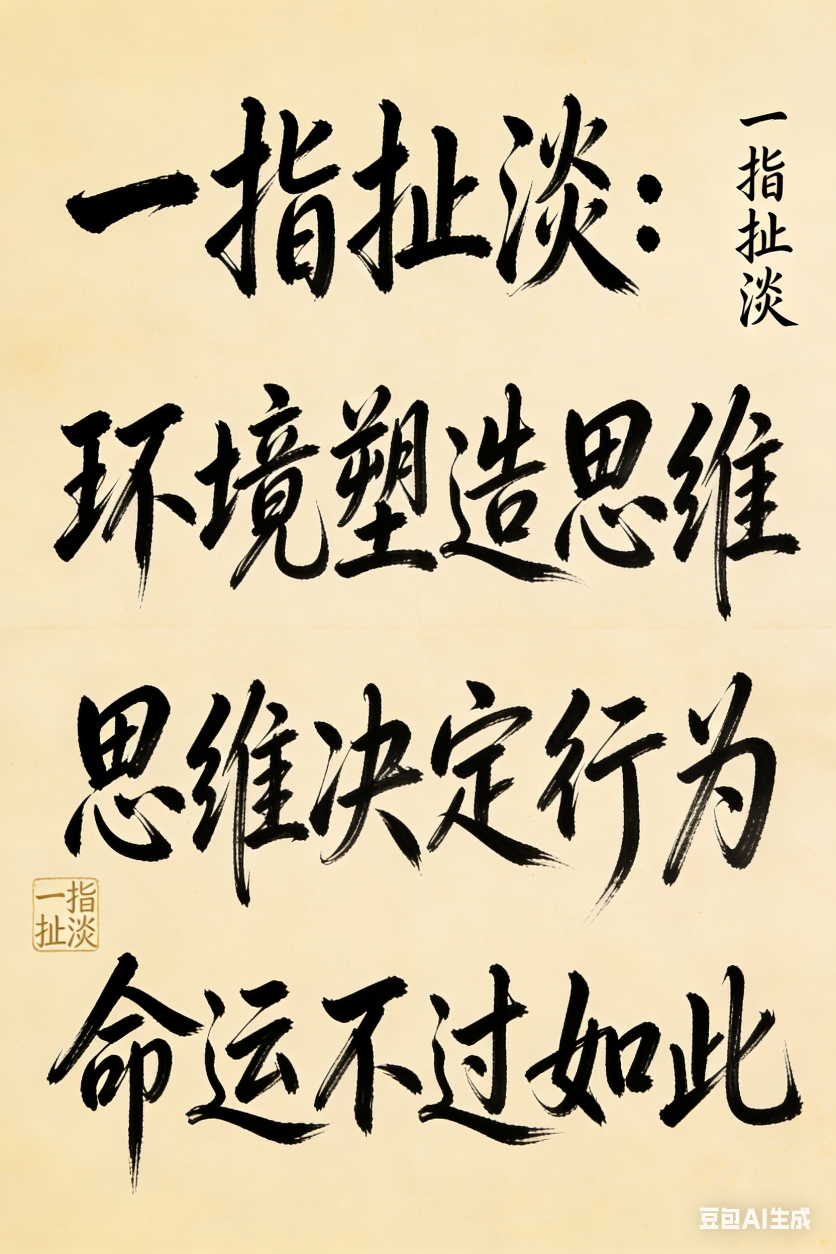 一指扯淡：
一指扯淡
环境塑造思维
思维决定行为
一指
扯淡
命运不过如此
豆包AI生成